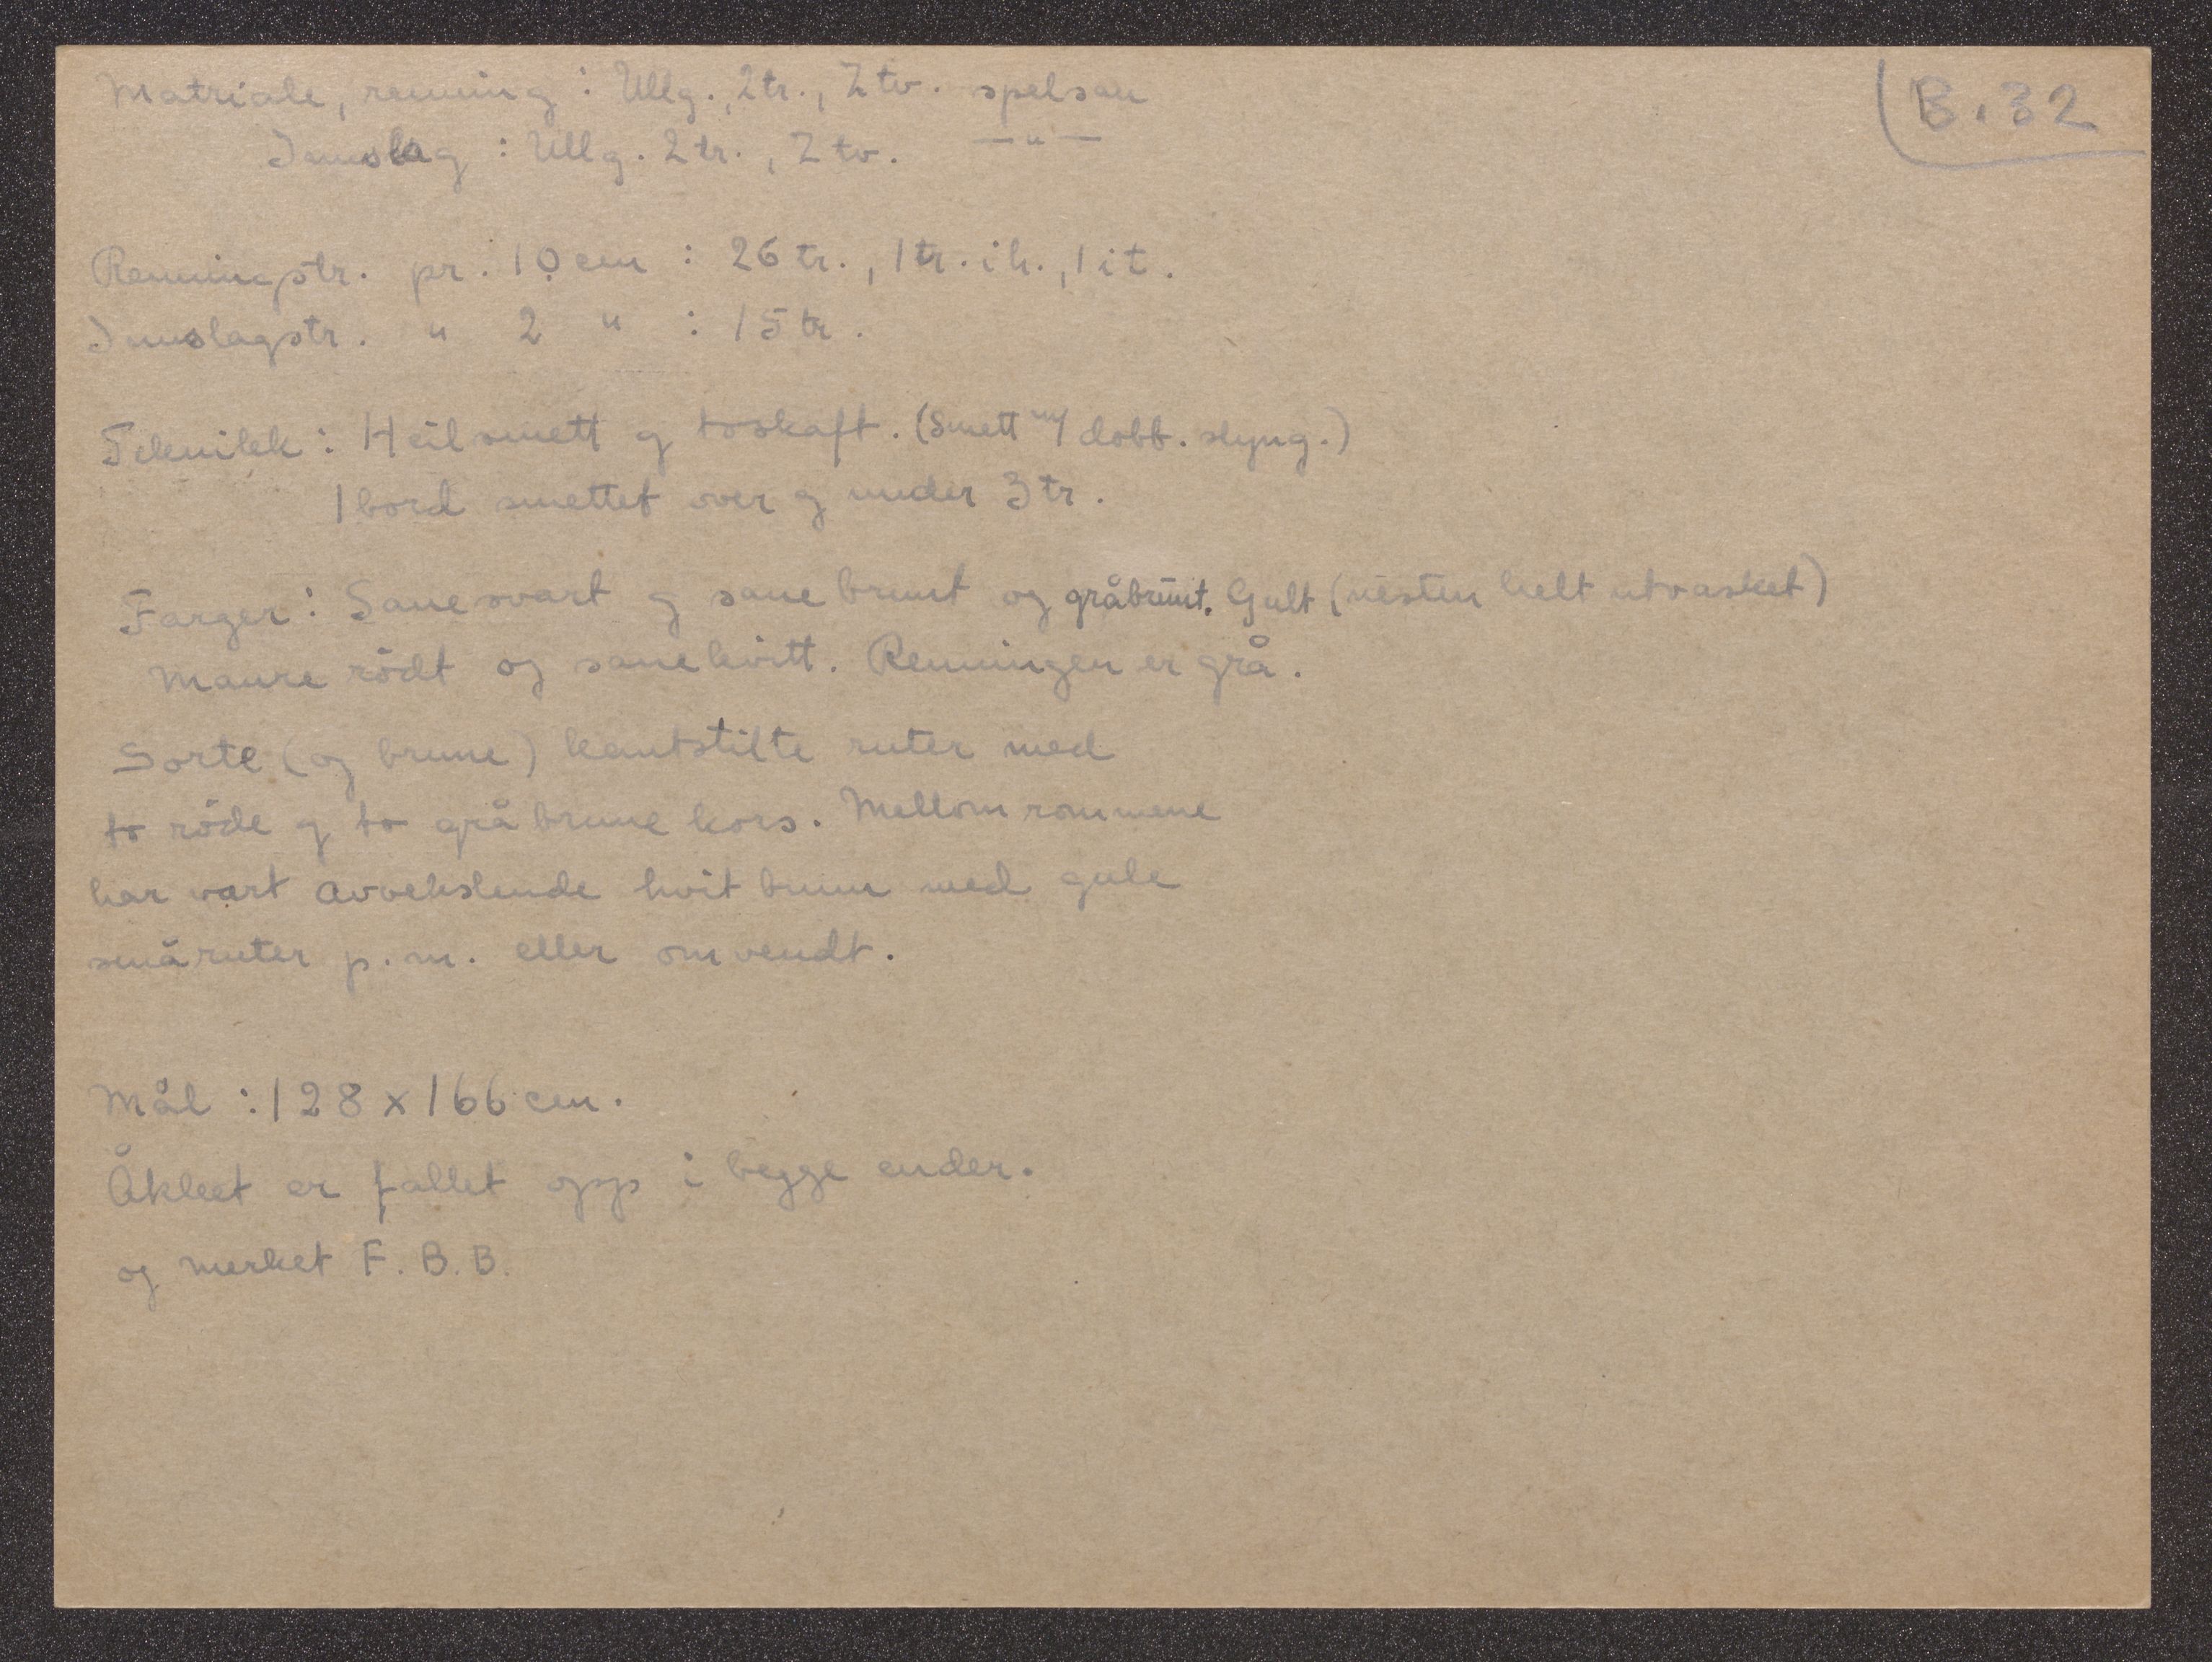 B. 32
Matriale, renning : Ullg., 2tr., Z tv. spelsau
Innslag : Ullg. 2tr., Z tv. — " —
Renningstr. pr. 10 cm : 26 tr., 1 tr. i h., 1 i t.
Innslagstr. " 2 " : 15 tr.
Teknikk : Heilsmett og toskaft. (Smett m/ dobb. slyng.)
1 bord smettet over og under 3 tr.
Farger : Sauesvart og sauebrunt og gråbrunt. Gult (nesten helt utvasket)
Maurerödt og sauekvitt. Renningen er grå.
Sorte (og brune) kantstilte ruter med
to röde og to gråbrune kors. Mellomrommene
har vært avvekslende hvit bunn med gule
småruter p.m. eller omvendt.
Mål : 128 x 166 cm.
Åkleet er fallet opp i begge ender.
og merket F. B. B.